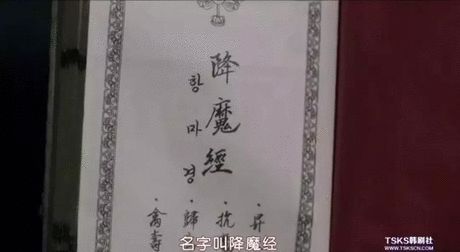 降魔經
항마경
·昇
·抗
·歸
·禽壽
名字叫降魔经
TSKS韩剧社
WWW.TSKSCN.COM